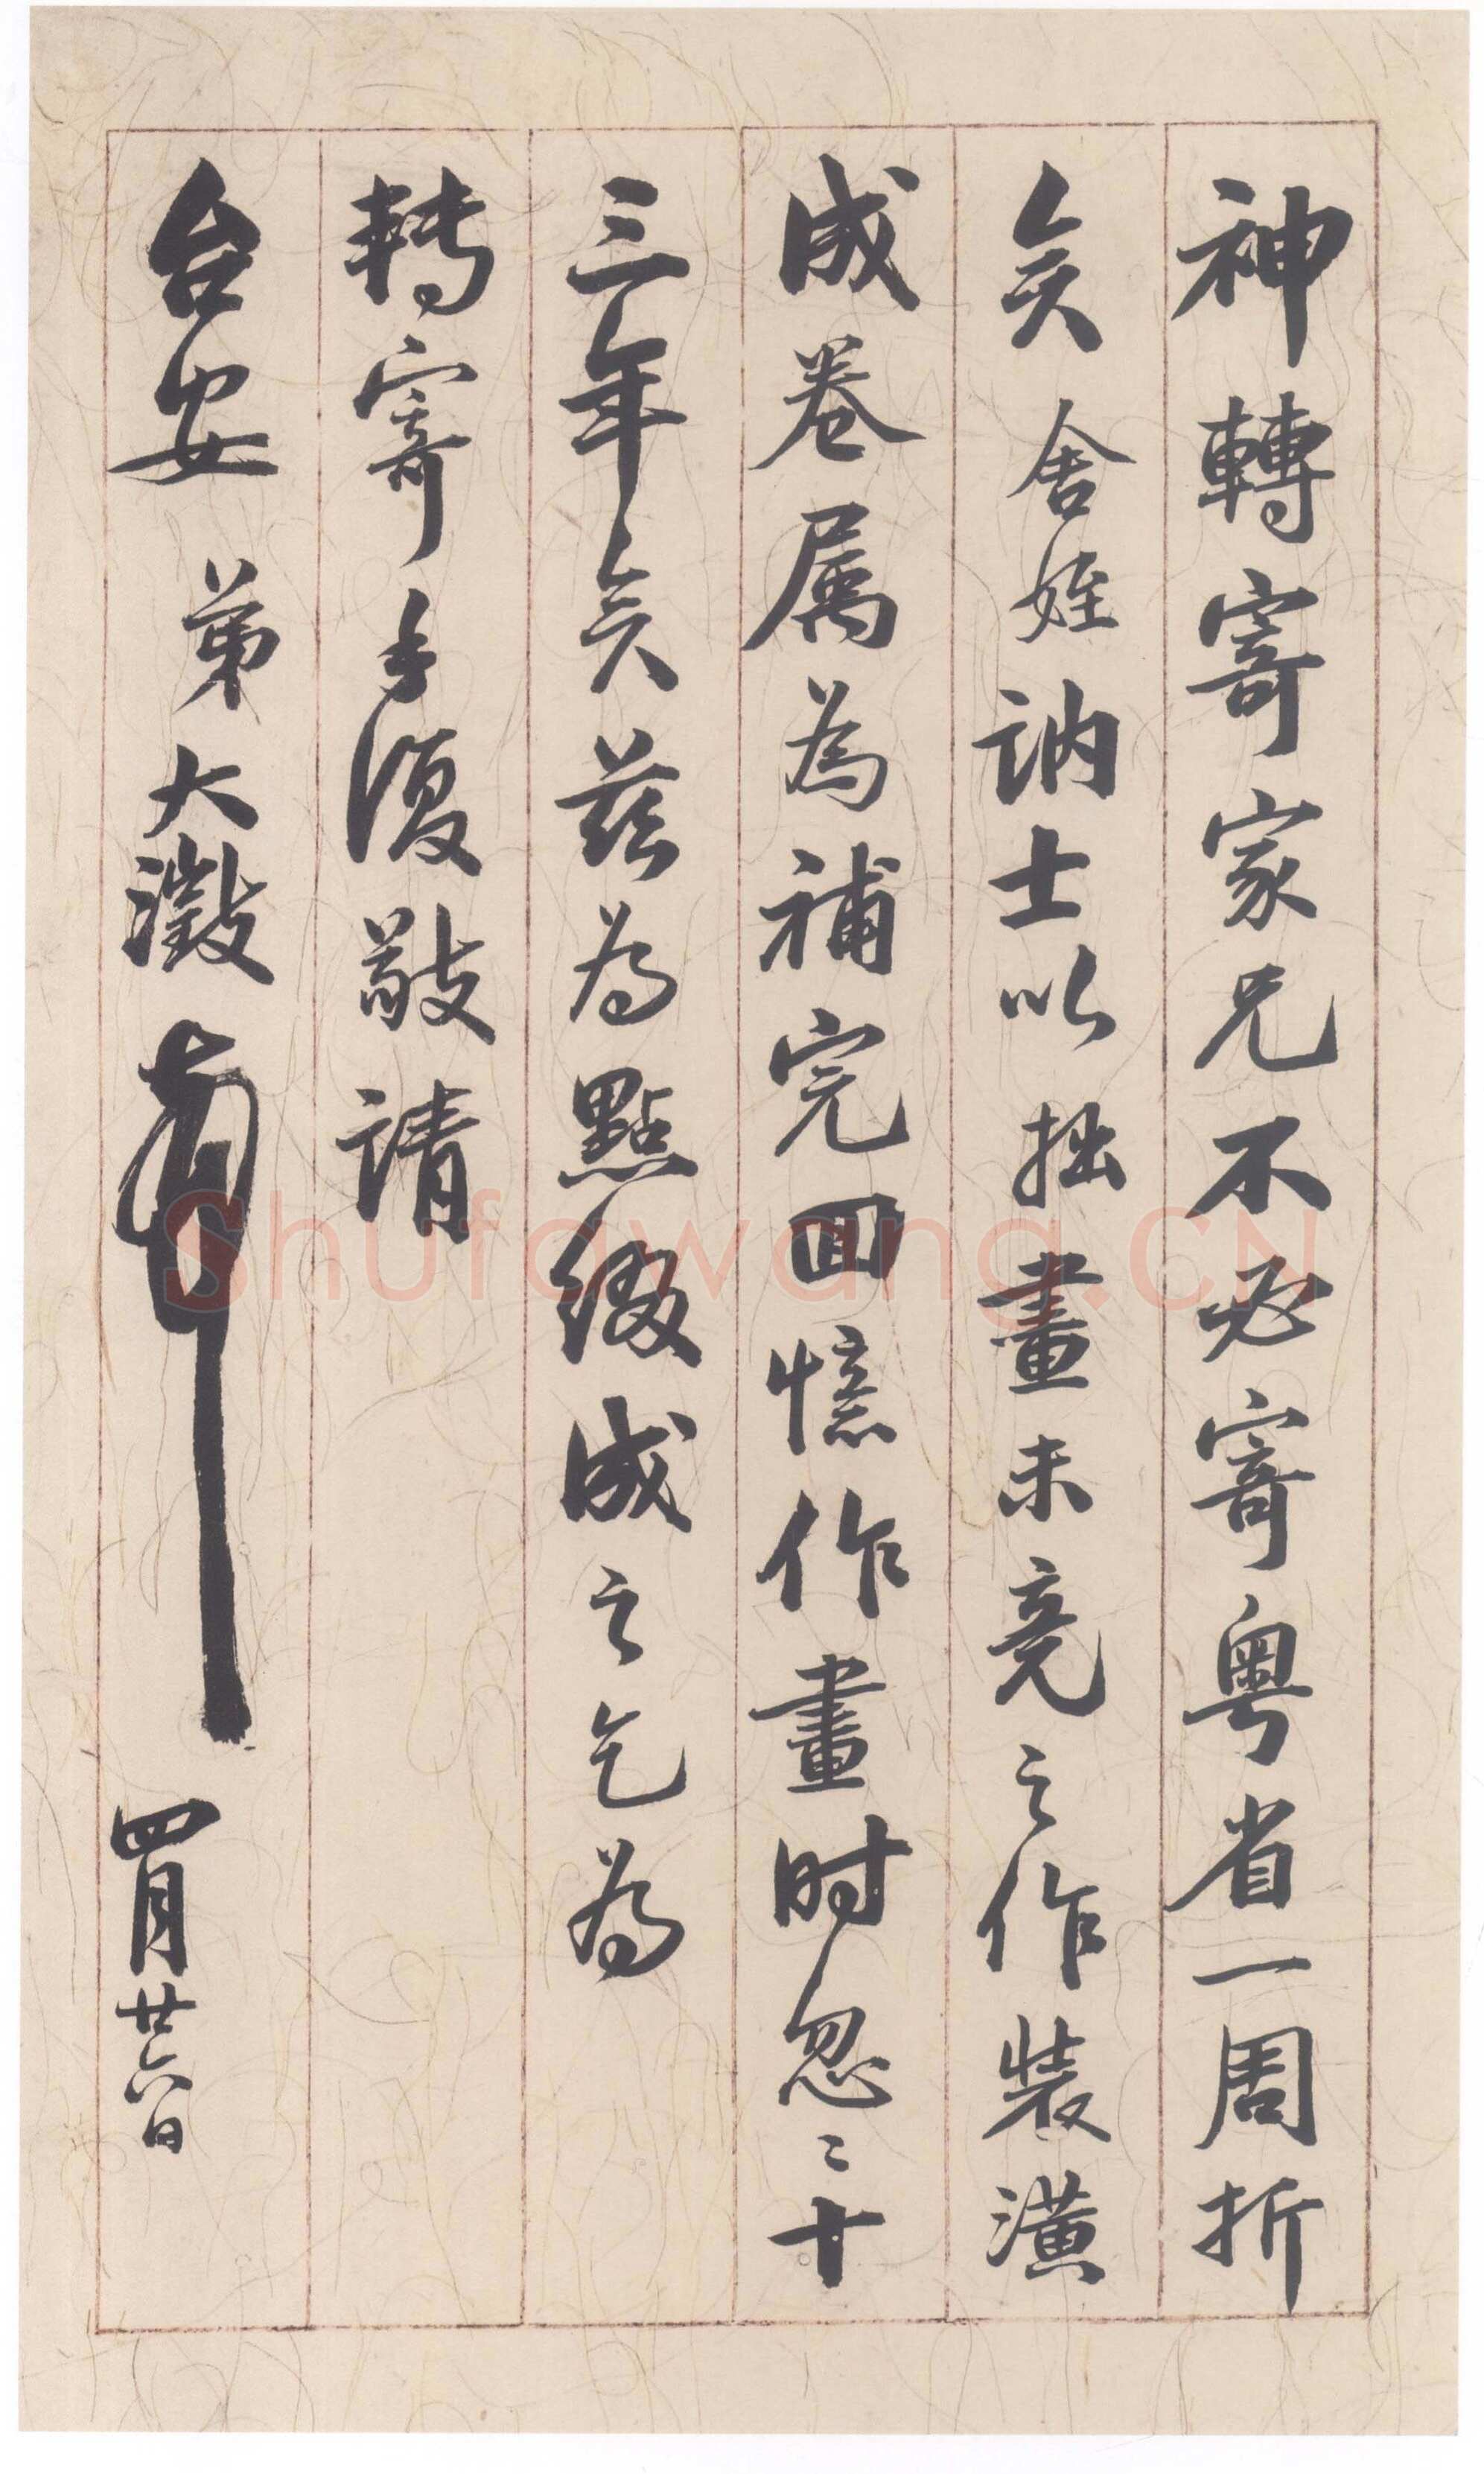 神轉寄家兄不必寄粤省一周折
矣舍姪訥士以拙畫未竟之作裝潢
成卷属為補完回憶作畫时忽〻十
三年矣茲為點綴成之乞為
轉寄手復敬請
台安 弟大澂頓首 四月廿六日
Shufawang.CN